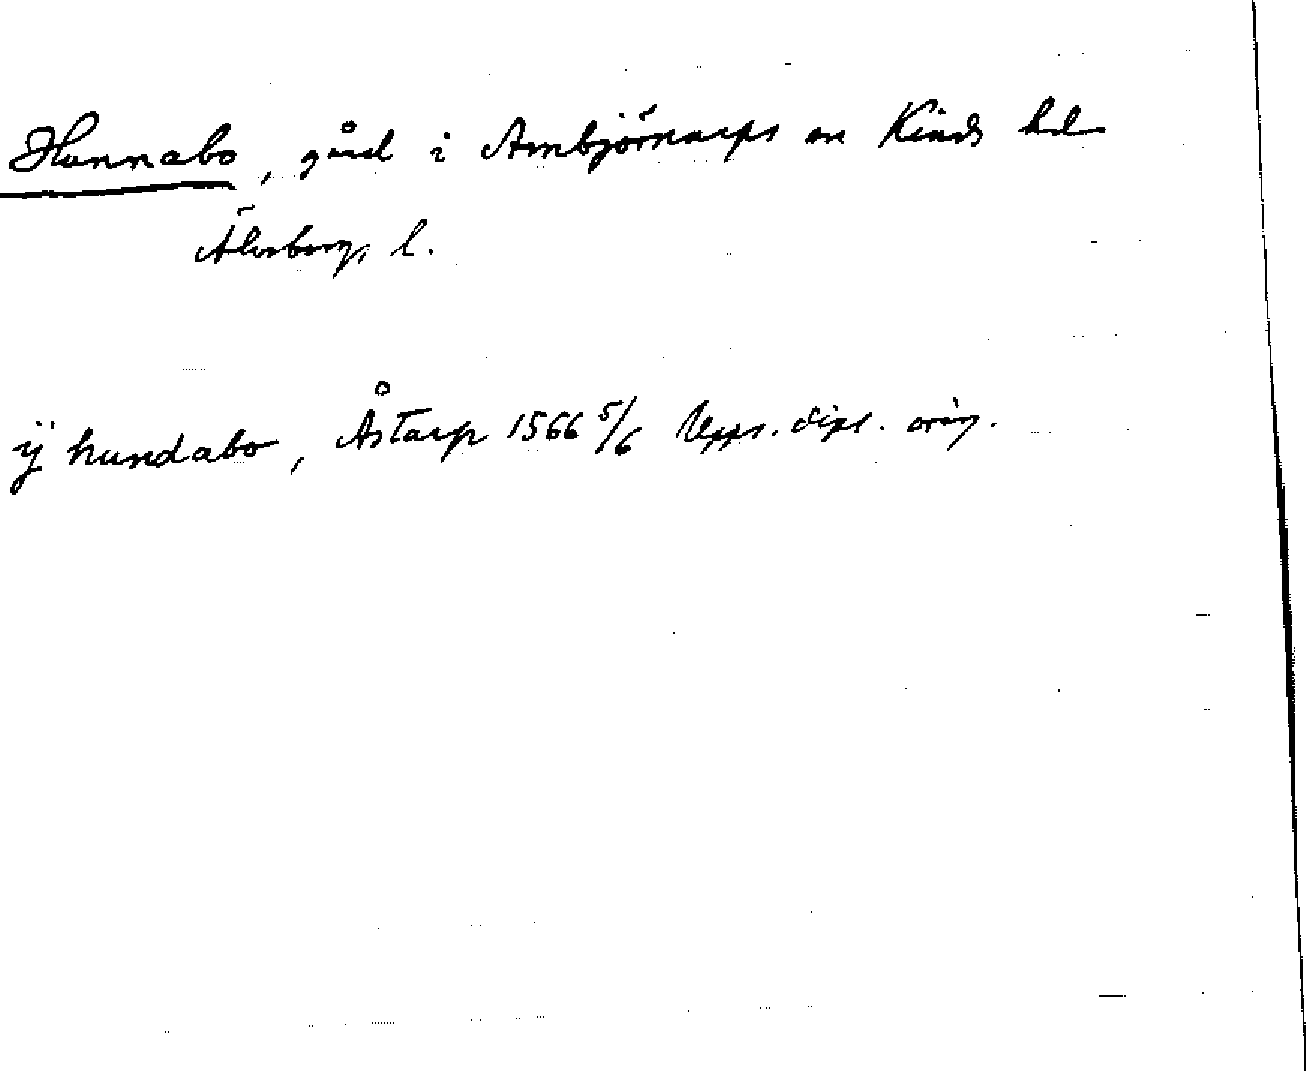 Hunnabo, gård i Ambjörnarps sn Kinds hd
Älvsborgs l.
ÿ hundabo, Åstarp 1566 5/6 Upps. dipl. orig.